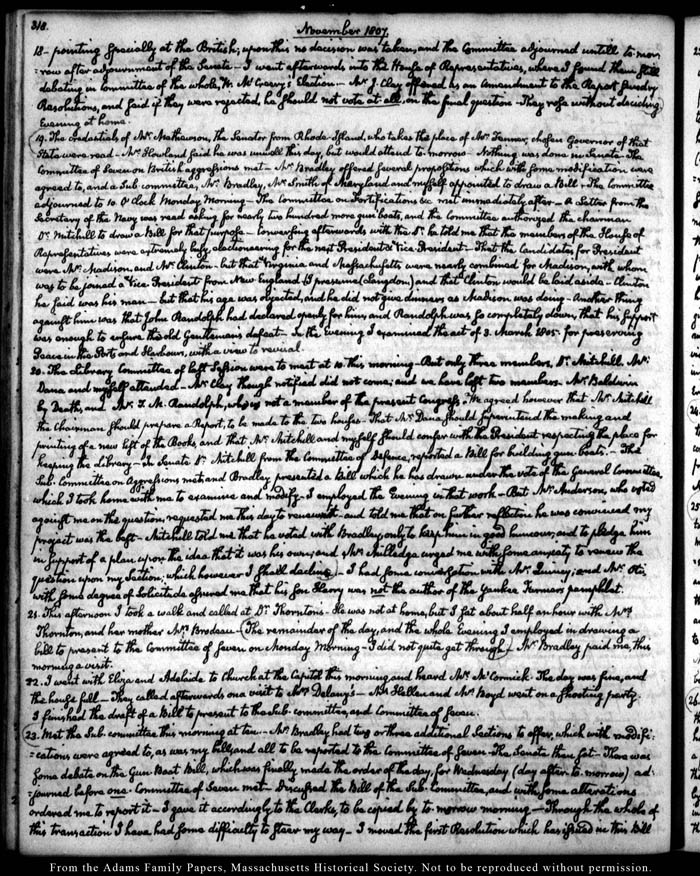 318.
November 1807.
18- pointing specially at the British; upon this no decision was taken, and the Committee adjourned untill to-mor-
-row after adjournment of the Senate- I went afterwards into the House of Representatives, where I found them still
debating in Committee of the whole, W. McCreery's Election- Mr. J. Clay offered as an Amendment to the Report sundry
Resolutions, and said if they were rejected, he should not vote at all, on the final question- They rose without deciding
Evening at home.
19. The credentials of Mr. Mathewson, the Senator from Rhode-Island, who takes the place of Mr. Fenner, chosen Governor of that
State were read- Mr. Howland said he was unwell this day, but would attend to-morrow- Nothing was done in Senate- The
Committee of Seven on British aggressions met- Mr. Bradley offered several propositions which with some modification were
agreed to, and a Sub committee, Mr. Bradley, Mr. Smith of Maryland and myself appointed to draw a Bill- The Committee
adjourned to 10 O'Clock Monday Morning- The Committee on Fortifications &c met immediately after- A Letter from the
Secretary of the Navy was read asking for nearly two hundred more gun boats, and the Committee authorized the chairman
Dr. Mitchill to draw a Bill for that purpose- Conversing afterwards with the Dr. he told me that the members of the House of
Representatives were extremely busy, electioneering for the next President & Vice-President- That the Candidates for President
were Mr. Madison, and Mr. Clinton- but that Virginia and Massachusetts were nearly combined for Madison, with whom
was to be joined a Vice President from New England (I presume Langdon) and that Clinton would be laid aside- Clinton
he said was his man- but that his age was objected, and he did not give dinners as Madison was doing- Another thing
against him was that John Randolph had declared openly for him, and Randolph was so completely down, that his support
was enough to ensure the old Gentleman's defeat- In the Evening I examined the act of 3. March 1805. for preserving
Peace in the Ports and Harbours, with a view to revisal.
20. The Library Committee of last Session were to meet at 10 this morning- But only three members, Dr. Mitchill, Mr.
Dana and myself attended- Mr. Clay though notified did not come; and we have lost two members- Mr. Baldwin
by Death, and Mr. T. M. Randolph, who is not a member of the present Congress. We agreed however that Mr. Mitchill
the Chairman should prepare a Report, to be made to the two houses- That Mr. Dana should superintend the making and
printing of a new list of the Books, and that Mr. Mitchill and myself should confer with the President respecting the place for
keeping the Library- In Senate Dr. Mitchill from the Committee of Defence, reported a Bill for building gun boats.- The
Sub-Committee on Aggressions met and Bradley presented a Bill which he has drawn under the vote of the General Committee,
which I took home with me to examine and modify- I employed the Evening in that work- But Mr. Anderson, who voted
against me on the question, requested me this day to renew it- and told me that on further reflection he was convinced my
project was the best- Mitchill told me that he voted with Bradley, only to keep him in good humour, and to pledge him
in support of a plan upon the idea that it was his own; and Mr. Milledge urged me with some anxiety to renew the
question upon my Section; which however I shall decline- I had some conversation with Mr. Quincy; and Mr. Otis
with some degree of Solicitude assured me that his son Harry was not the author of the Yankee Farmers pamphlet.
21. This afternoon I took a walk and called at Dr. Thornton's- He was not at home, but I sat about half an hour with Mrs.
Thornton, and her mother Mrs. Brodeau- The remainder of the day, and the whole Evening I employed in drawing a
bill to present to the Committee of Seven on Monday Morning- I did not quite get through- Mr. Bradley paid me, this
morning a visit.
22. I went with Eliza and Adelaide to Church at the Capitol this morning and heard Mr. McCormick. The day was fine, and
the house full- They called afterwards on a visit to Mrs. Delany's- Mrs. Hellen and Mr. Boyd went on a shooting party.
I finished the draft of a Bill to present to the Sub-committee, and Committee of Seven.
23. Met the Sub-committee this morning at ten- Mr. Bradley had two or three additional Sections to offer, which with modifi-
-cations were agreed to, as was my bill, and all to be reported to the Committee of Seven- The Senate then sat- There was
some debate on the Gun-Boat Bill, which was finally made the order of the day, for Wednesday (day after to-morrow) ad-
-journed before one- Committee of Seven met- Discussed the Bill of the Sub-Committee, and with some alterations
ordered me to report it- I gave it accordingly to the Clerks, to be copied by to-morrow morning- Through the whole of
this transaction I have had some difficulty to steer my way- I moved the first Resolution which has issued in this Bill
From the Adams Family Papers, Massachusetts Historical Society. Not to be reproduced without permission.